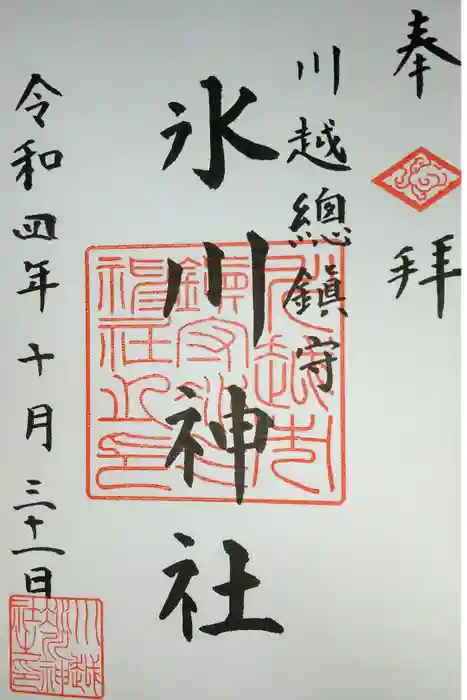 奉拝
川越總鎮守
氷川神社
令和四年十月三十一日